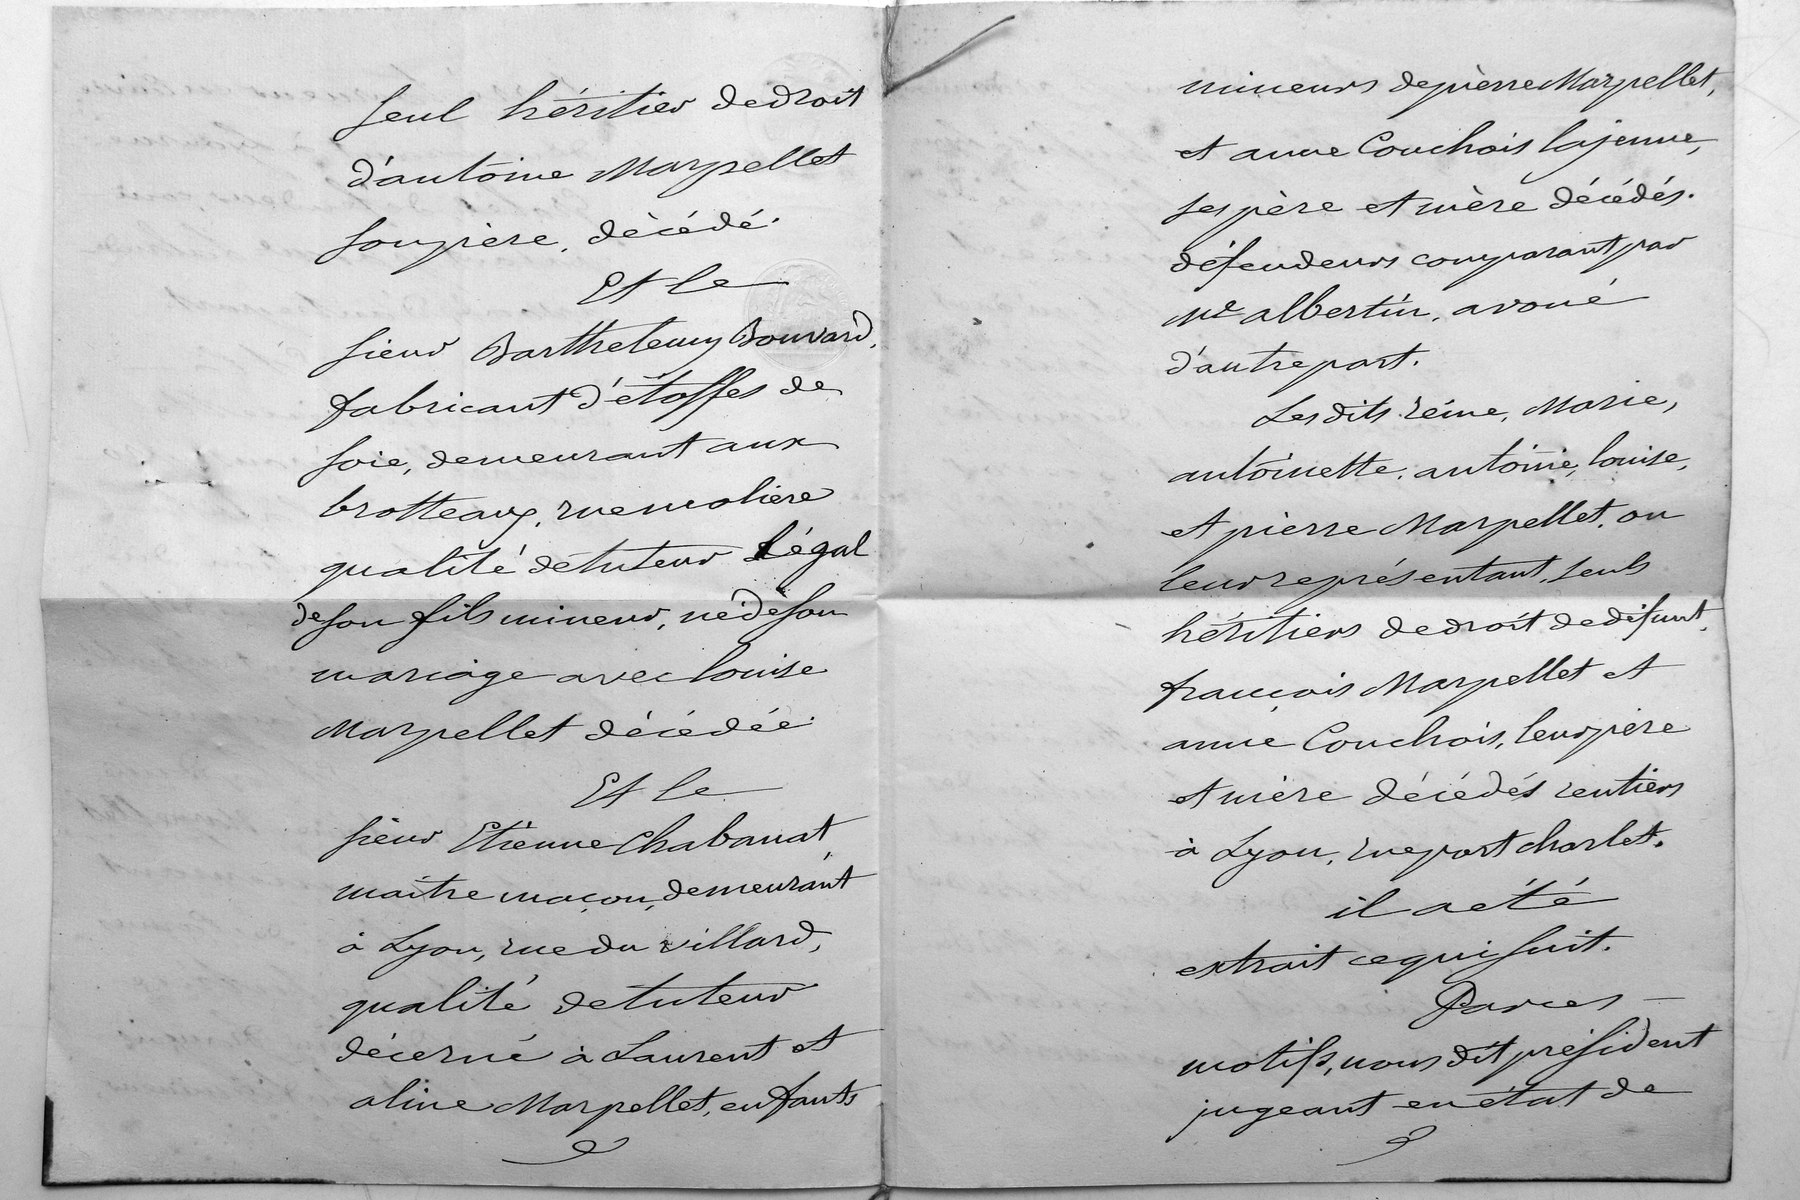 seul héritier de droit
d'antoine Marpellet
son père, décédé.
Et le
sieur Barthelemy Bouvard,
fabricant d'étoffes de
soie, demeurant aux
brotteaux, rue molière
qualité de tuteur légal
de son fils mineur, né de son
mariage avec louise
Marpellet décédée.
Et le
sieur Etienne Chabanat,
maître maçon, demeurant
à Lyon, rue du villard,
qualité de tuteur
décerné à Laurent et
aline Marpellet, enfants
mineurs de pierre Marpellet,
et anne Couchois la jeune,
ses père et mère décédés.
défendeurs comparant par
Me albertin, avoué
d'autre part.
Les dits reine, Marie,
antoinette, antoine, louise,
et pierre Marpellet, ou
leur représentant, seuls
héritiers de droit de défunt,
françois Marpellet et
anne Couchois, leur père
et mère décédés rentiers
à Lyon, rue port charlet.
il a été
extrait ce qui suit.
Par ces
motifs, nous dit président
jugeant en état de